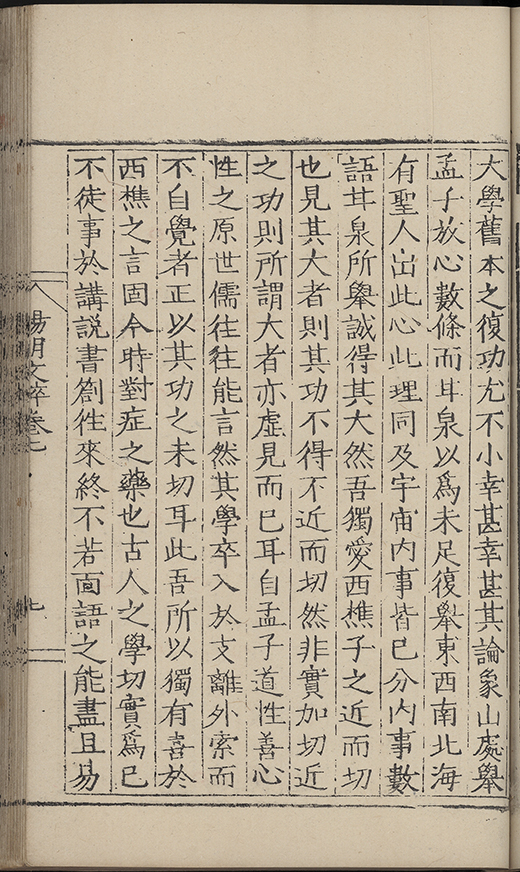 大學舊本之復功尤不小幸甚幸甚其論象山處舉
孟子放心數條而甘泉以爲未足復舉東西南北海
有聖人出此心此理同及宇宙内事皆己分内事數
語甘泉所舉誠得其大然吾獨愛西樵子之近而切
也見其大者則其功不得不近而切然非實加切近
之功則所謂大者亦虛見而已耳自孟子道性善心
性之原世儒往往能言然其學卒入於支離外索而
不自覺者正以其功之未切耳此吾所以獨有喜於
西樵之言固今時對症之藥也古人之學切實爲己
不徒事於講説書劄徃來終不若面語之能盡且易
陽明文粹卷七
七